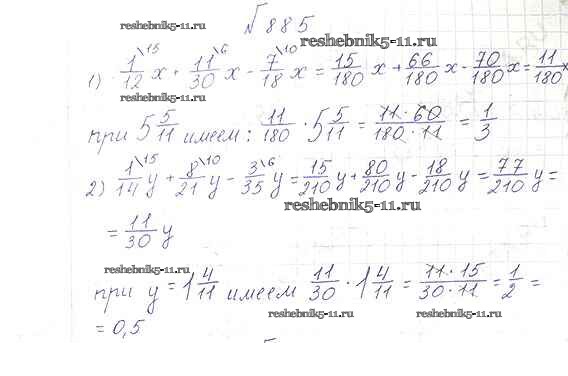 reshebnik5-11.ru №885
reshebnik5-11.ru
1) 1/12\15 x + 11/30\6 x - 7/18\10 x = 15/180 x + 66/180 x - 70/180 x = 11/180 x
reshebnik5-11.ru
при 5 5/11 имеем: 11/180 · 5 5/11 = 11·60/180·11 = 1/3
2) 1/14\15 y + 8/21\10 y - 3/35\6 y = 15/210 y + 80/210 y - 18/210 y = 77/210 y =
reshebnik5-11.ru
= 11/30 y
reshebnik5-11.ru
при y = 1 4/11 имеем 11/30 · 1 4/11 = 11·15/30·11 = 1/2 =
reshebnik5-11.ru
= 0,5
reshebnik5-11.ru